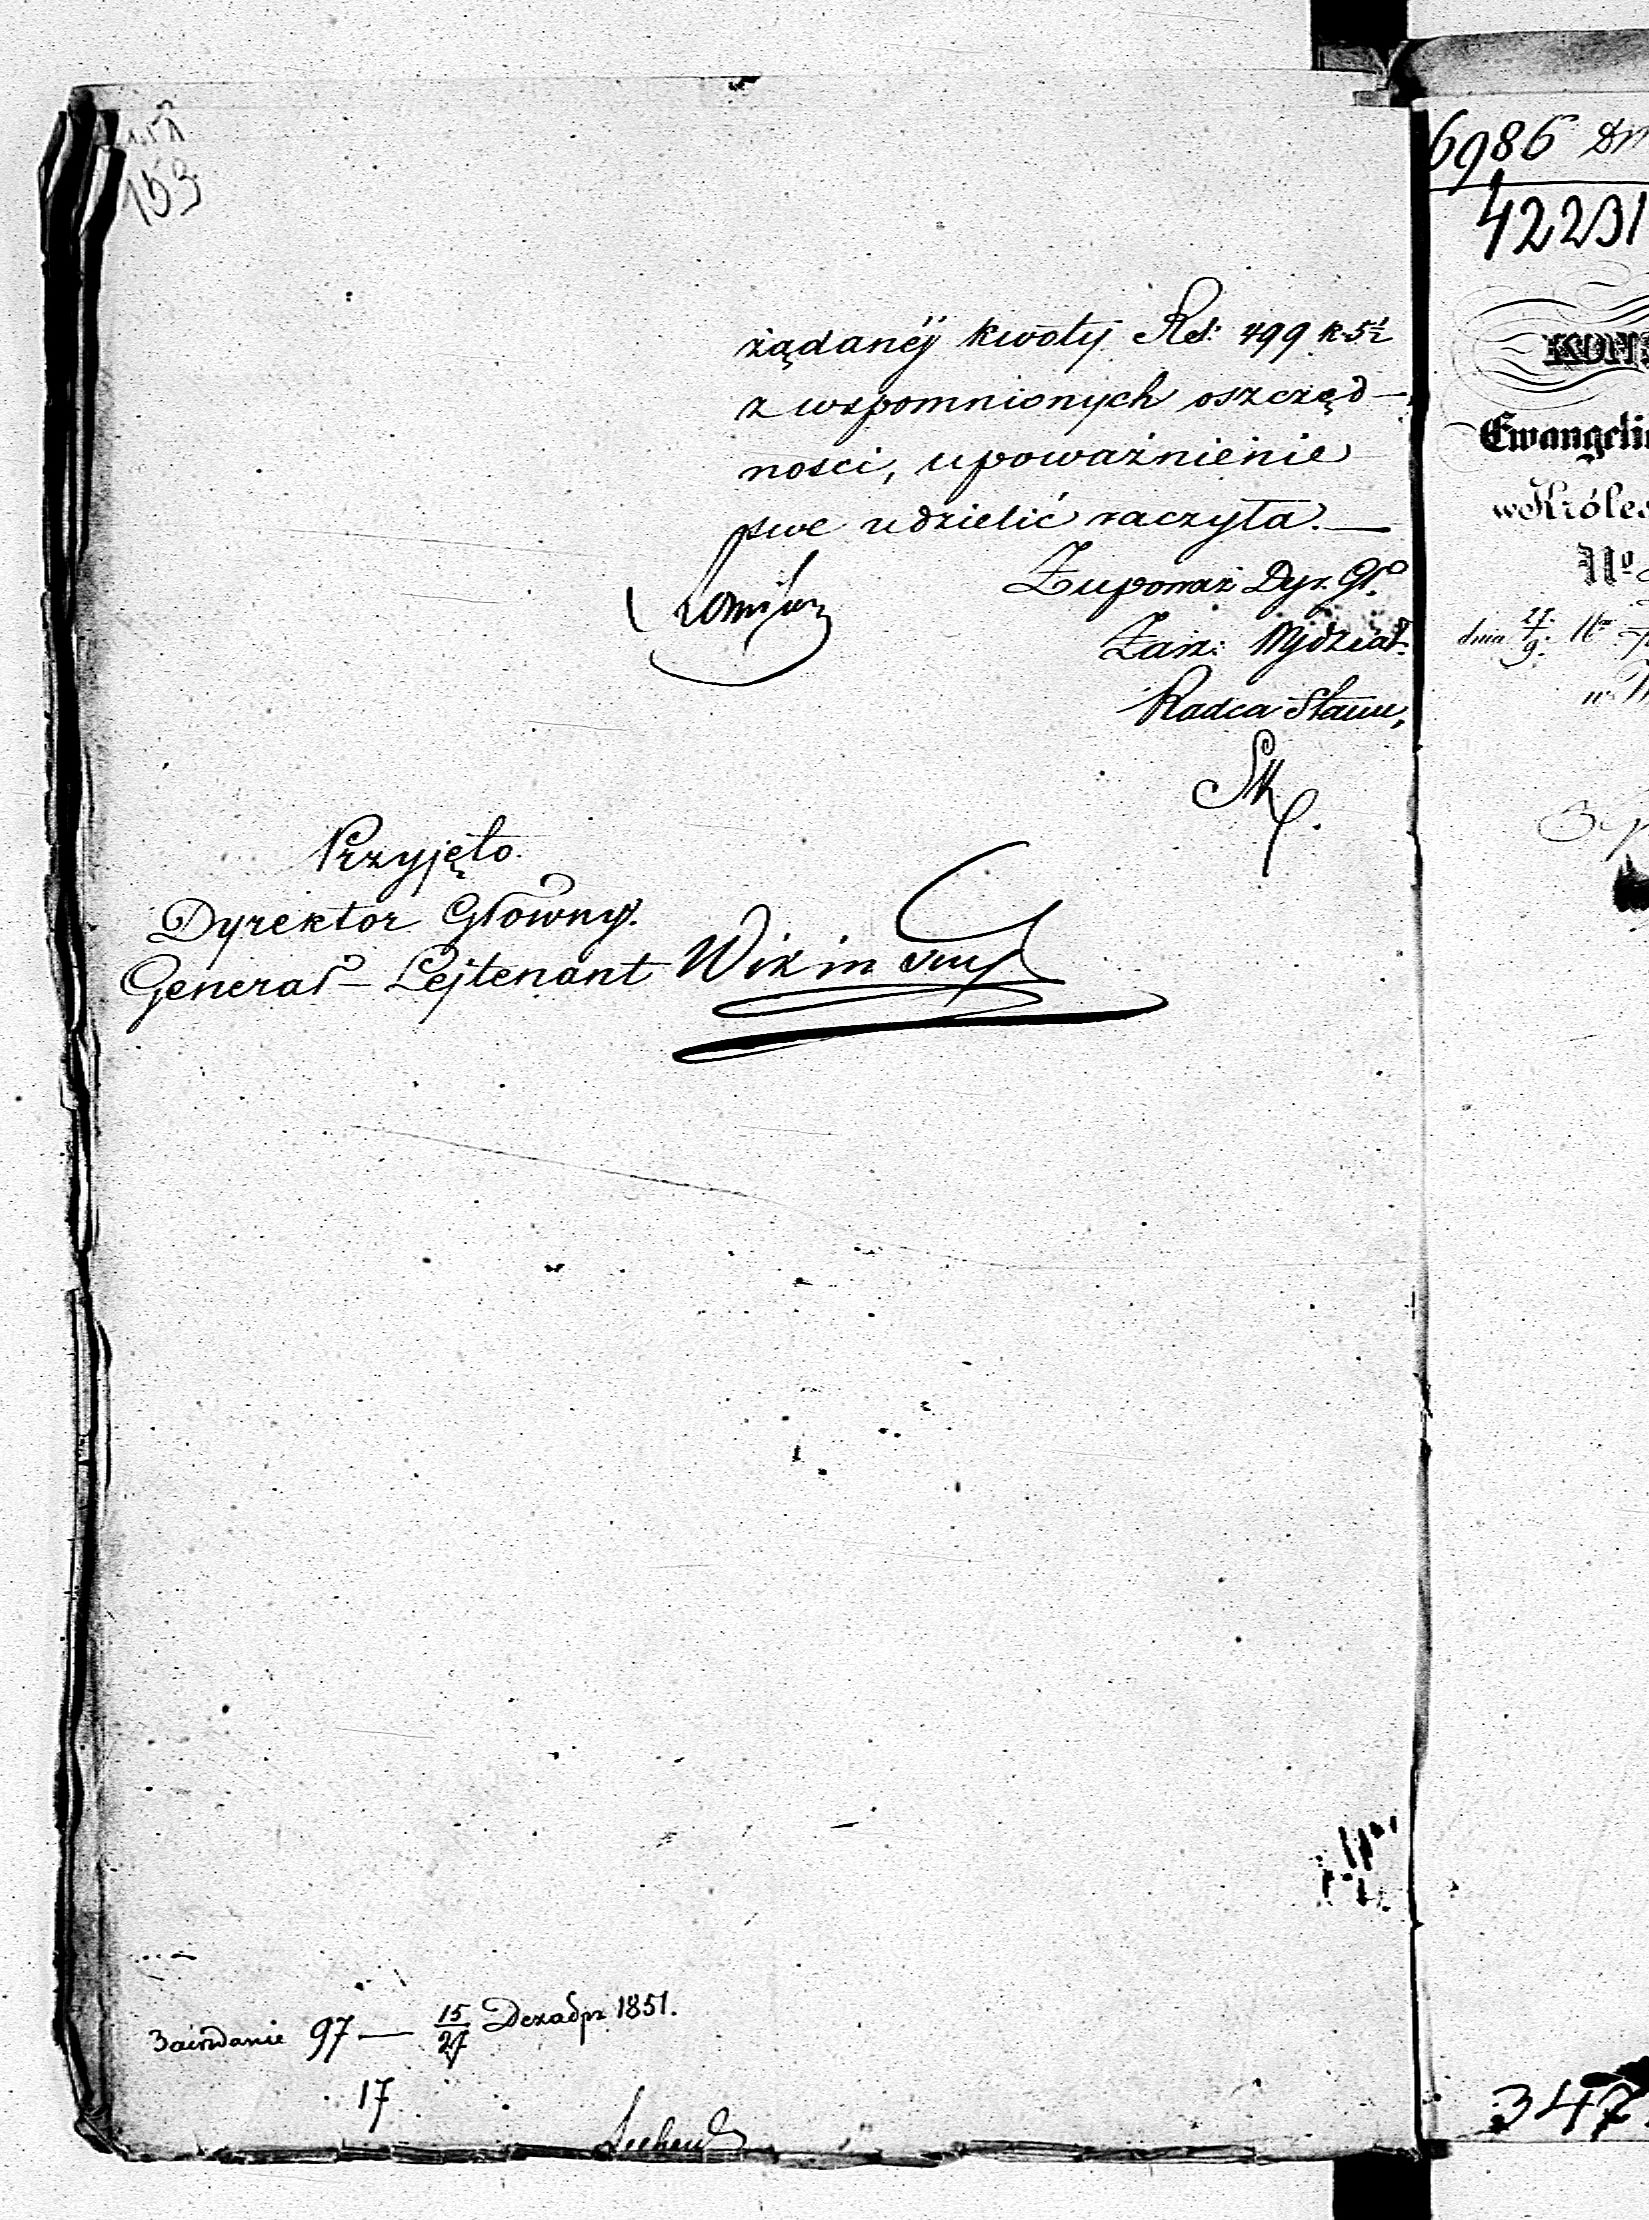 153
żądanéj kwoty Rs: 499 k. 5½
z wspomnionych oszczęd—
ności, upoważnienie
swe udzielić raczyła.—
Zupoważ Dyr. Gł.
Zarz: Wydział:
Radca Stanu,
Przyjęto.
Dyrektor Główny.
Generał-Lejtenant Wikiński
Засѣданіе 97 — 15/27 Декабря 1851.
17
6986
42231
Ewangeli
w Króles
No
dnia
347